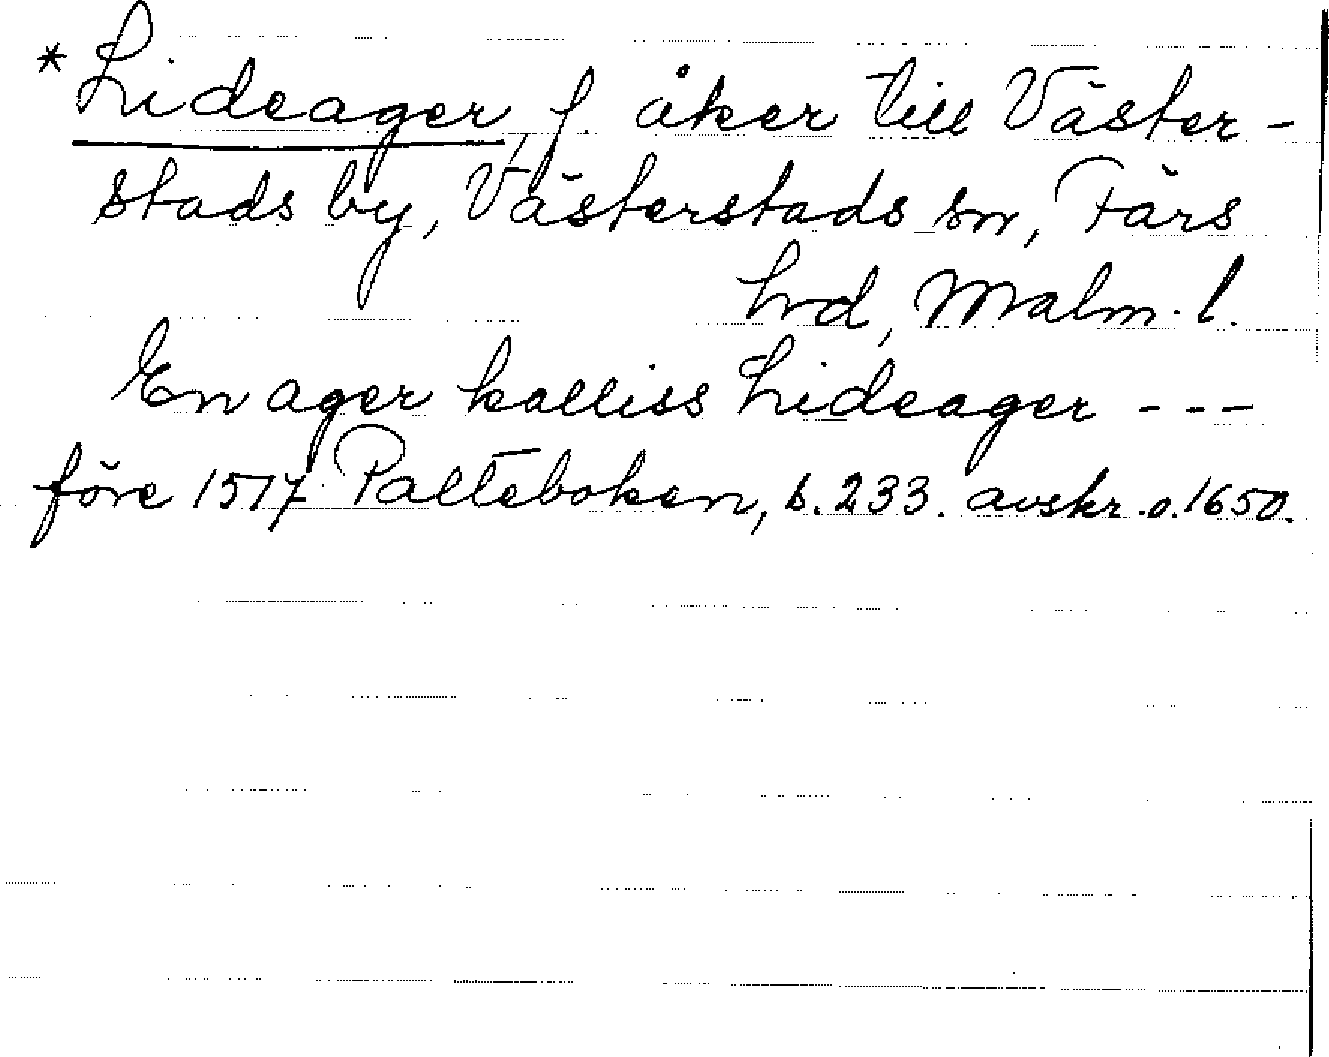 * Lideager, f åker till Väster-
stads by, Västerstads sn, Färs
hrd, Malm. l.
En ager kalliss Lideager ---
före 1517. Palteboken, s. 233. avskr. o. 1650.